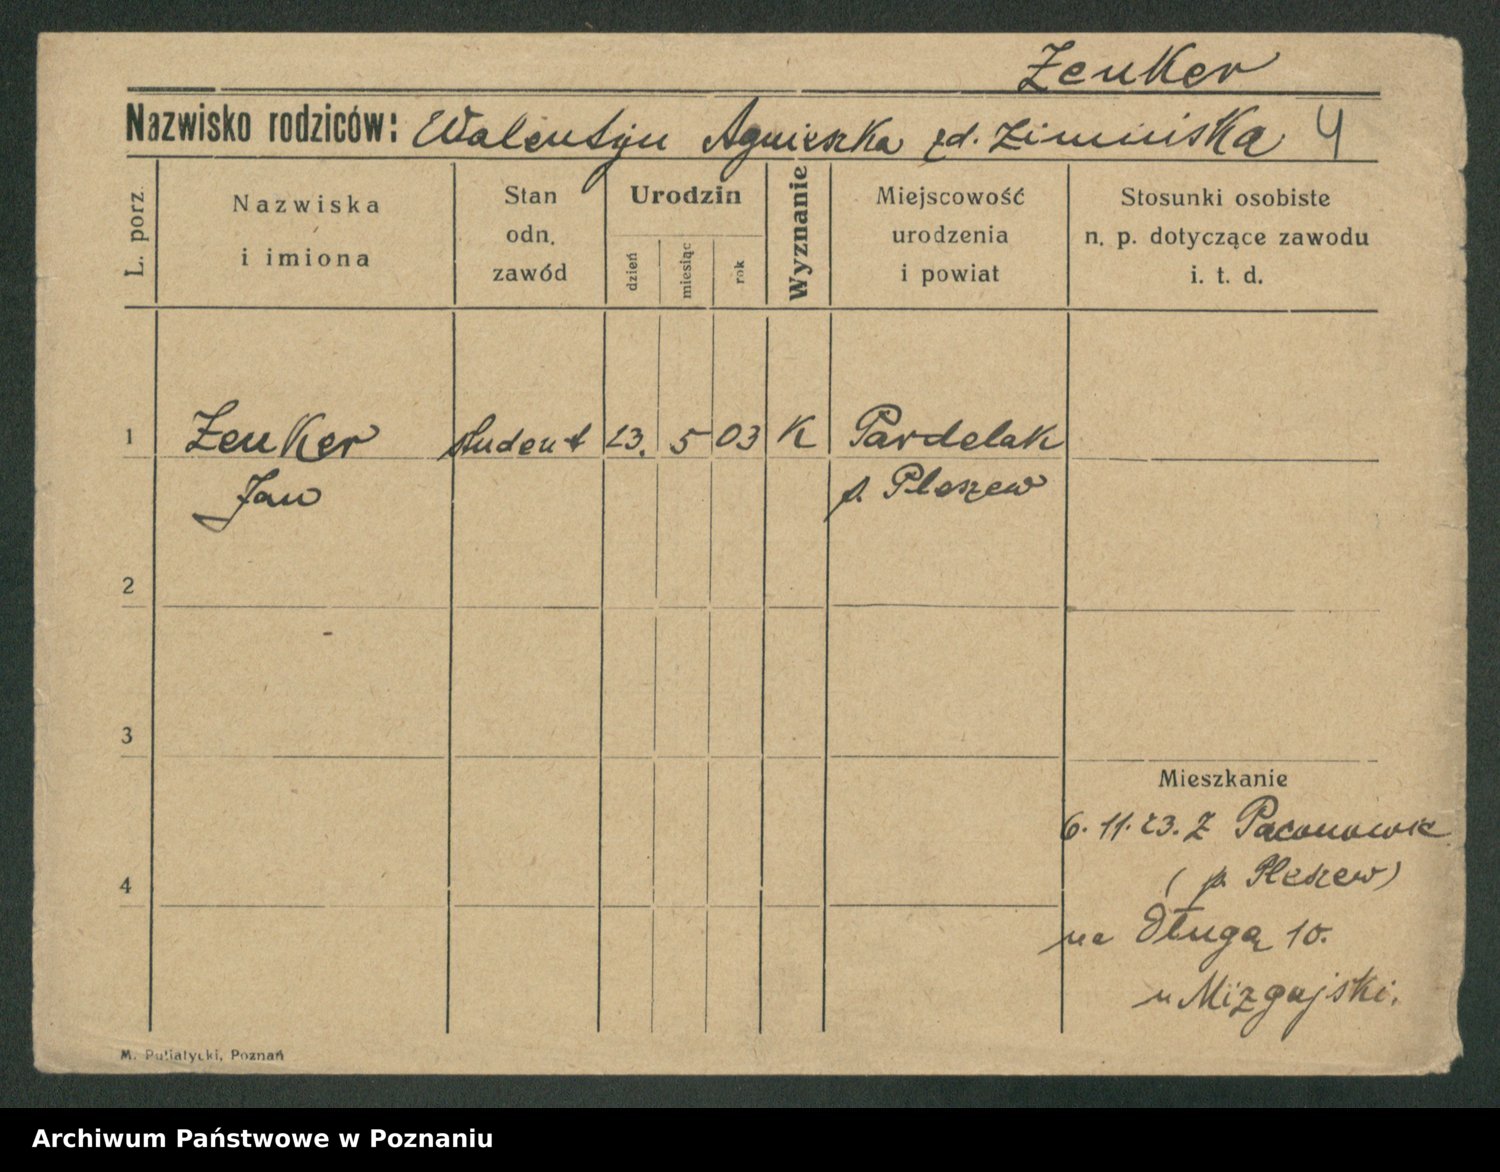 Zenker
Nazwisko rodziców: Walentyn Agnieszka zd. Zimińska 4
L. porz.
Nazwiska
i imiona
Stan
odn.
zawód
Urodzin
dzień
miesiąc
rok
Wyznanie
Miejscowość
urodzenia
i powiat
Stosunki osobiste
n. p. dotyczące zawodu
i. t. d.
1 Zenker student 23. 5 03 K Pardelak
Jan p. Pleszew
2
3
Mieszkanie
6. 11. 23. z Pacanowic
4
( p. Pleszew)
na Długą 10.
u Mizgajski.
M. Putiatycki, Poznań
Archiwum Państwowe w Poznaniu